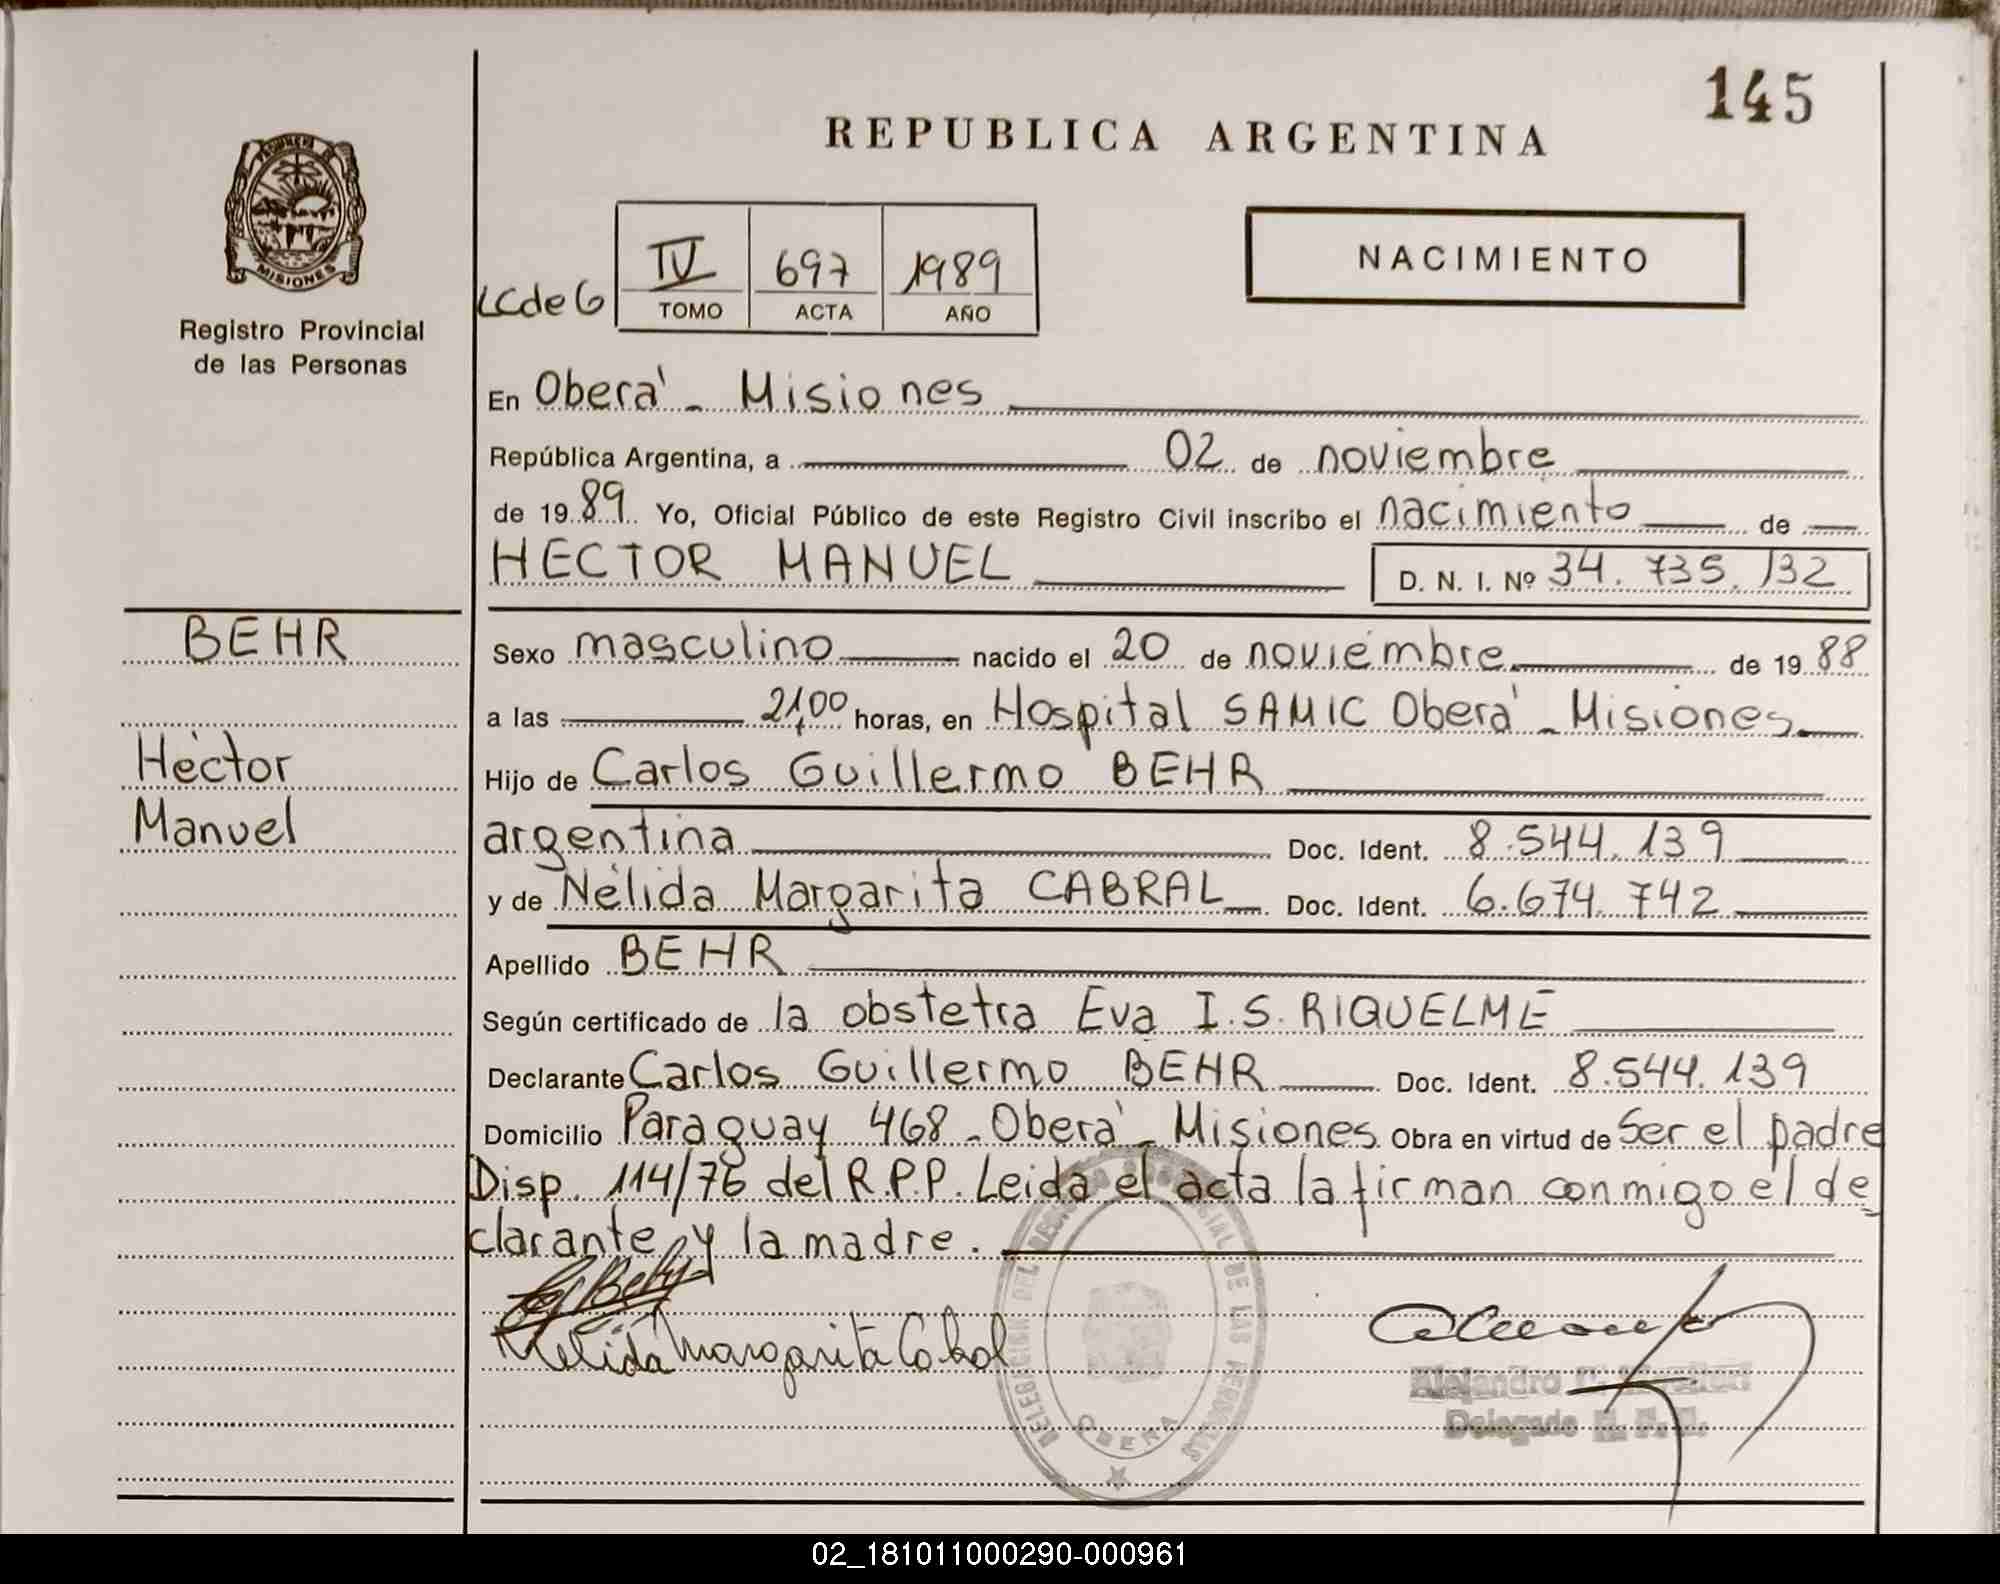 145
REPUBLICA ARGENTINA
PROVINCIA DE
MISIONES
Registro Provincial
de las Personas
NACIMIENTO
LCdeG
IV 697 1989
TOMO ACTA AÑO
En Oberá - Misiones
República Argentina, a 02 de noviembre
de 1989 Yo, Oficial Público de este Registro Civil inscribo el nacimiento de
HECTOR MANUEL D. N. I. Nº 34.735.132
BEHR
Héctor
Manuel
Sexo masculino nacido el 20 de noviembre de 1988
a las 21,00 horas, en Hospital SAMIC Oberá - Misiones
Hijo de Carlos Guillermo BEHR
argentina Doc. Ident. 8.544.139
y de Nélida Margarita CABRAL Doc. Ident. 6.674.742
Apellido BEHR
Según certificado de la obstetra Eva I.S. RIQUELME
Declarante Carlos Guillermo BEHR Doc. Ident. 8.544.139
Domicilio Paraguay 468 - Oberá - Misiones Obra en virtud de Ser el padre
Disp. 114/76 del R.P.P. Leida el acta la firman conmigo el de
clarante y la madre.
Behr
Nelida Margarita Cabral
DELEGACION DEL REGISTRO PROVINCIAL DE LAS PERSONAS
OBERA
Alejandro
Delegado R. P. P.
02_181011000290-000961